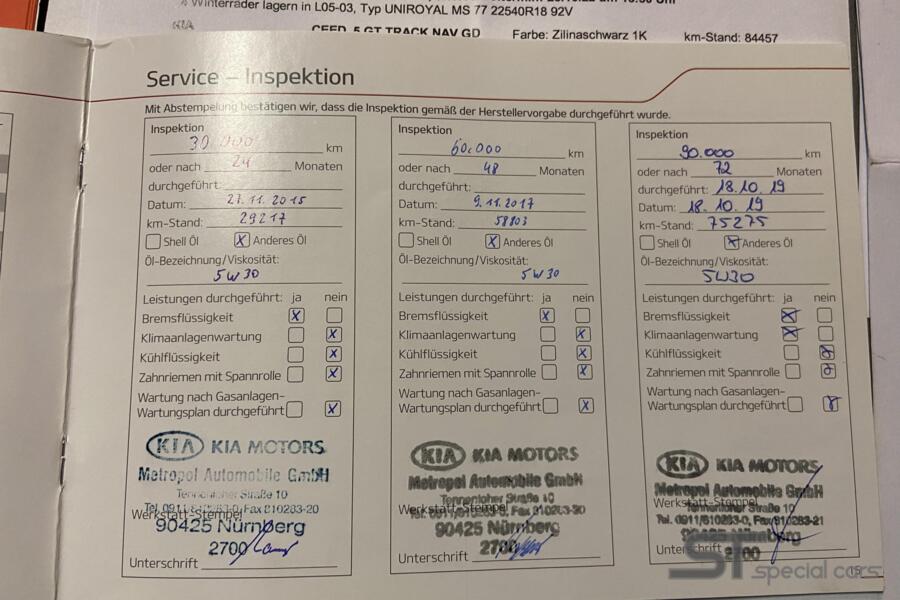 Winterräder lagern in L05-03, Typ UNIROYAL MS 77 22540R18 92V
KIA
CEED 5 GT TRACK NAV GD Farbe: Zilinaschwarz 1K km-Stand: 84457
Service – Inspektion
Mit Abstempelung bestätigen wir, dass die Inspektion gemäß der Herstellervorgabe durchgeführt wurde.
Inspektion
30.000 km
oder nach 24 Monaten
durchgeführt:
Datum: 27.11.2015
km-Stand: 29217
Shell Öl X Anderes Öl
Öl-Bezeichnung/Viskosität:
5W30
Leistungen durchgeführt: ja nein
Bremsflüssigkeit X
Klimaanlagenwartung X
Kühlflüssigkeit X
Zahnriemen mit Spannrolle X
Wartung nach Gasanlagen-
Wartungsplan durchgeführt X
KIA KIA MOTORS
Metropol Automobile GmbH
Tennenloher Straße 10
Tel. 0911/610283-0, Fax 610283-20
Werkstatt-Stempel
90425 Nürnberg
2700
Unterschrift
Inspektion
60.000 km
oder nach 48 Monaten
durchgeführt:
Datum: 9.11.2017
km-Stand: 58803
Shell Öl X Anderes Öl
Öl-Bezeichnung/Viskosität:
5W30
Leistungen durchgeführt: ja nein
Bremsflüssigkeit X
Klimaanlagenwartung X
Kühlflüssigkeit X
Zahnriemen mit Spannrolle X
Wartung nach Gasanlagen-
Wartungsplan durchgeführt X
KIA KIA MOTORS
Metropol Automobile GmbH
Tennenloher Straße 10
Werkstatt-Stempel
90425 Nürnberg
2700
Unterschrift
Inspektion
90.000 km
oder nach 72 Monaten
durchgeführt: 18.10.19
Datum: 18.10.19
km-Stand: 75275
Shell Öl X Anderes Öl
Öl-Bezeichnung/Viskosität:
5W30
Leistungen durchgeführt: ja nein
Bremsflüssigkeit X
Klimaanlagenwartung X
Kühlflüssigkeit
Zahnriemen mit Spannrolle
Wartung nach Gasanlagen-
Wartungsplan durchgeführt
KIA KIA MOTORS
Metropol Automobile GmbH
Tennenloher Straße 10
Werkstatt-Stempel
Tel. 0911/610283-0, Fax 610283-21
90425 Nürnberg
Unterschrift 2700
15
ST special cars